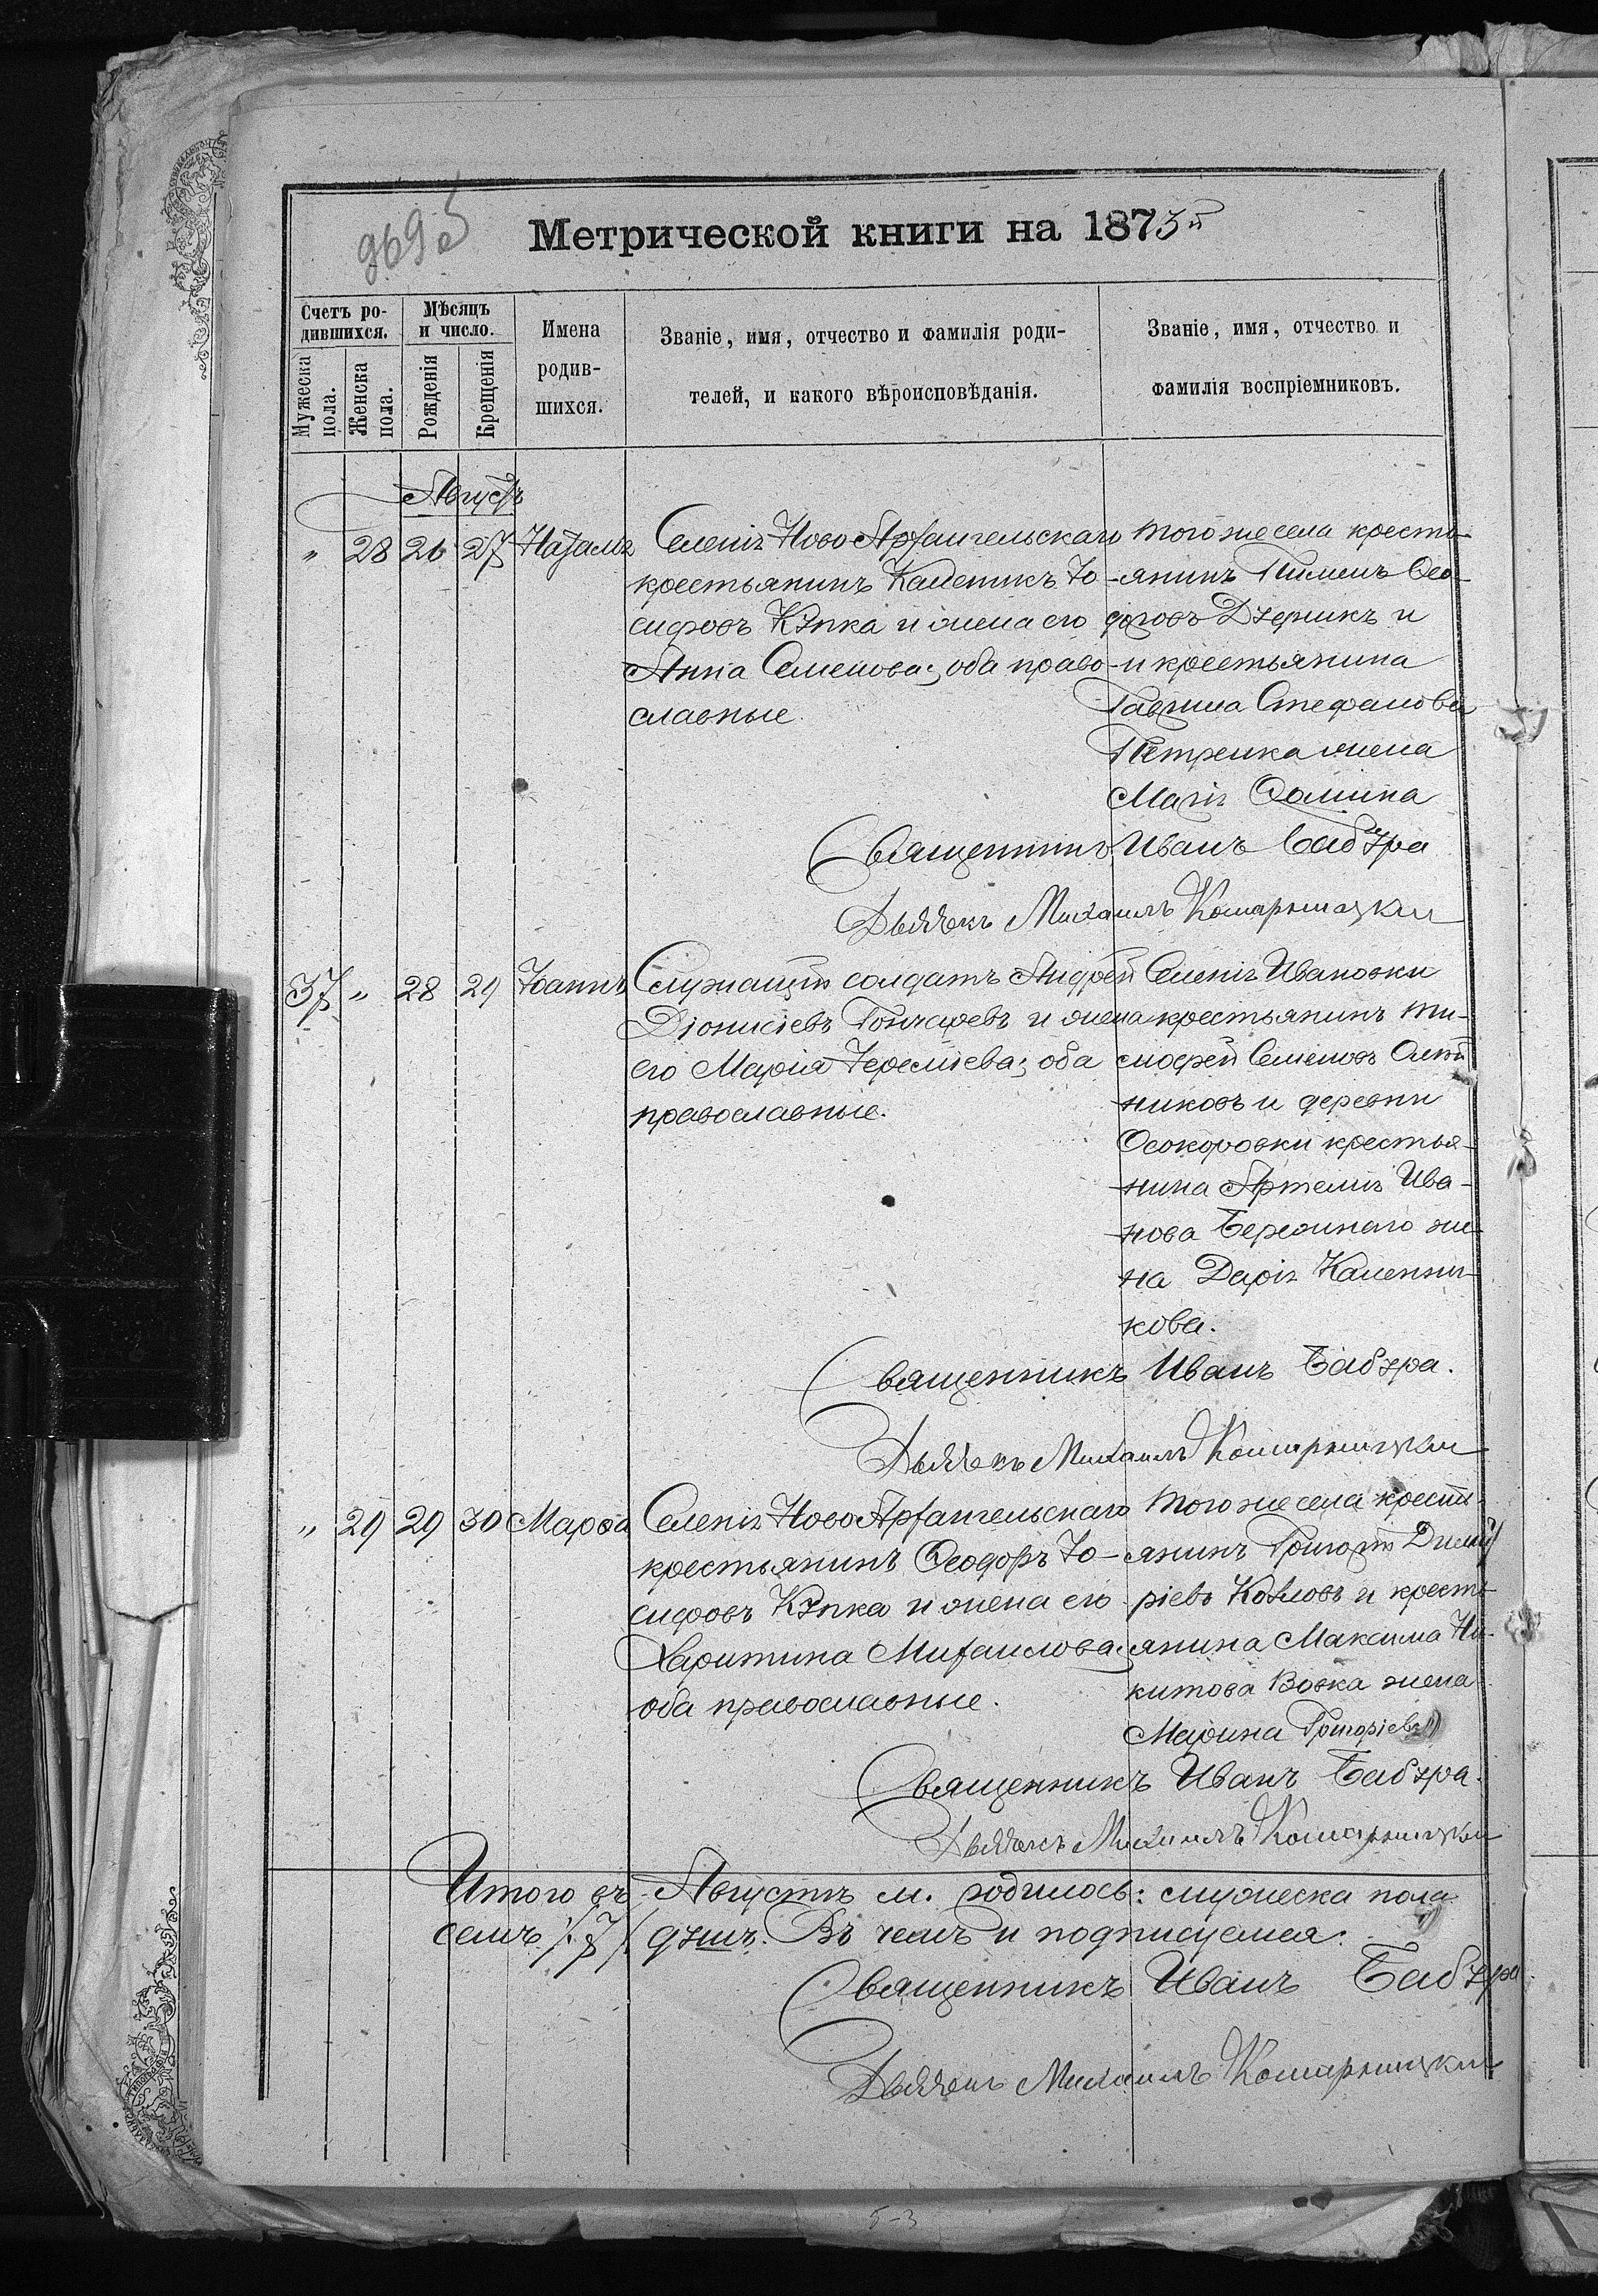 969
Метрической книги на 1873й
Счетъ ро-
дившихся.
Мужеска пола.
Женска пола.
Мѣсяцъ
и число.
Рожденія
Крещенія
Имена
родив-
шихся.
Званіе, имя, отчество и фамилія роди-
телей, и какого вѣроисповѣданія.
Званіе, имя, отчество и
фамилія воспріемниковъ.
Августъ
" 28 26 27
Селенія Ново Архангельскаго
крестьянинъ Каленикъ Іо-
сифовъ Кѣпка и жена его
Анна Семенова; оба право-
славные.
того же села кресть-
янинъ Пименъ Ѳео-
доровъ и
и крестьянина
Гавріила Стефанова
Петренка жена
Марія Ѳомина
Священникъ Иванъ Бабура
Дьячекъ Михаилъ
37 " 28 29 Іоаннъ
Служащій солдатъ Андрей
Діонисіевъ Гончаревъ и жена
его Марія Іереміева; оба
православные.
Селенія Ивановки
крестьянинъ Ти-
мофей Семеновъ
никовъ и деревни
Осокоровки крестья-
нина Артемія Ива-
нова Бережнаго же-
на Дарія Каленни-
кова.
Священникъ Иванъ Бабура.
Дьячекъ Михаилъ
" 29 29 30 Марѳа
Селенія Ново Архангельскаго
крестьянинъ Ѳеодоръ Іо-
сифовъ Кѣпка и жена его
Харитина Михаилова;
оба православные.
того же села кресть-
янинъ Григорій Димит
ріевъ Козловъ и кресть-
янина Максима Ни-
китова Вовка жена
Марина Григоріева
Священникъ Иванъ Бабура.
Дьячекъ Михаилъ
Итого въ Августѣ м. родилось: мужеска пола
семь /:7/ душъ. Въ чемъ и подписуемся:
Священникъ Иванъ Бабура
Дьячекъ Михаилъ
5-3